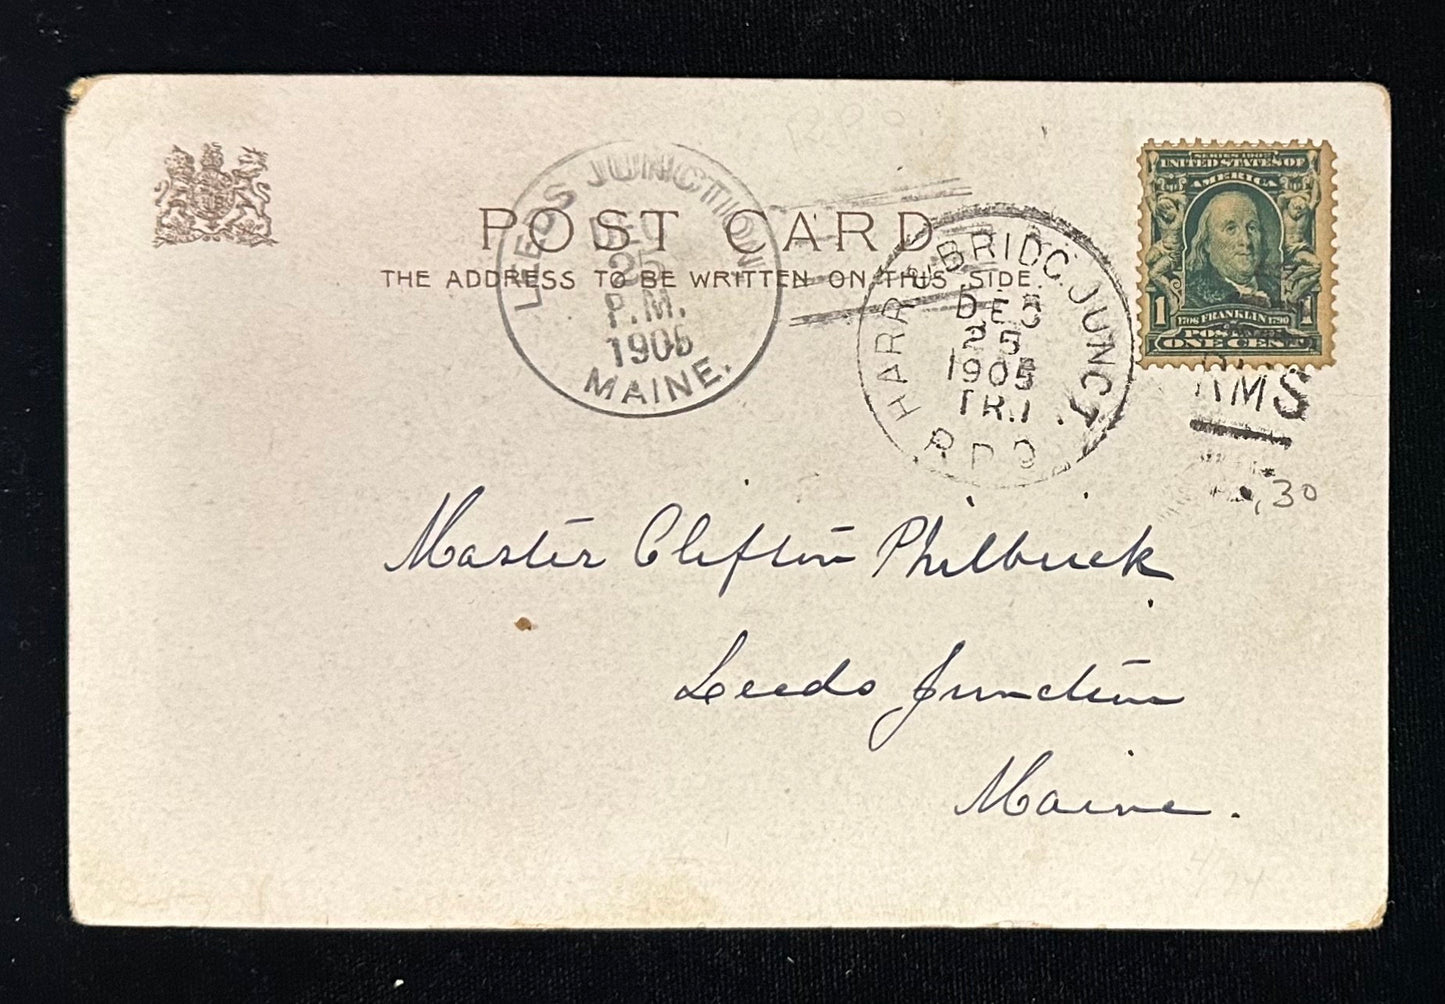 RPO
POST CARD
THE ADDRESS TO BE WRITTEN ON THIS SIDE.
LEEDS JUNCTION
DEC
25
P.M.
1905
MAINE.
BRIDG. JUNC
DEC
25
1905
TR.1
R.P.O.
SERIES 1902
UNITED STATES OF
AMERICA
1 1
1706 FRANKLIN 1790
POSTAGE
ONE CENT
RMS
30
Master Clifton Philbrick
Leeds Junction
Maine.
4/24